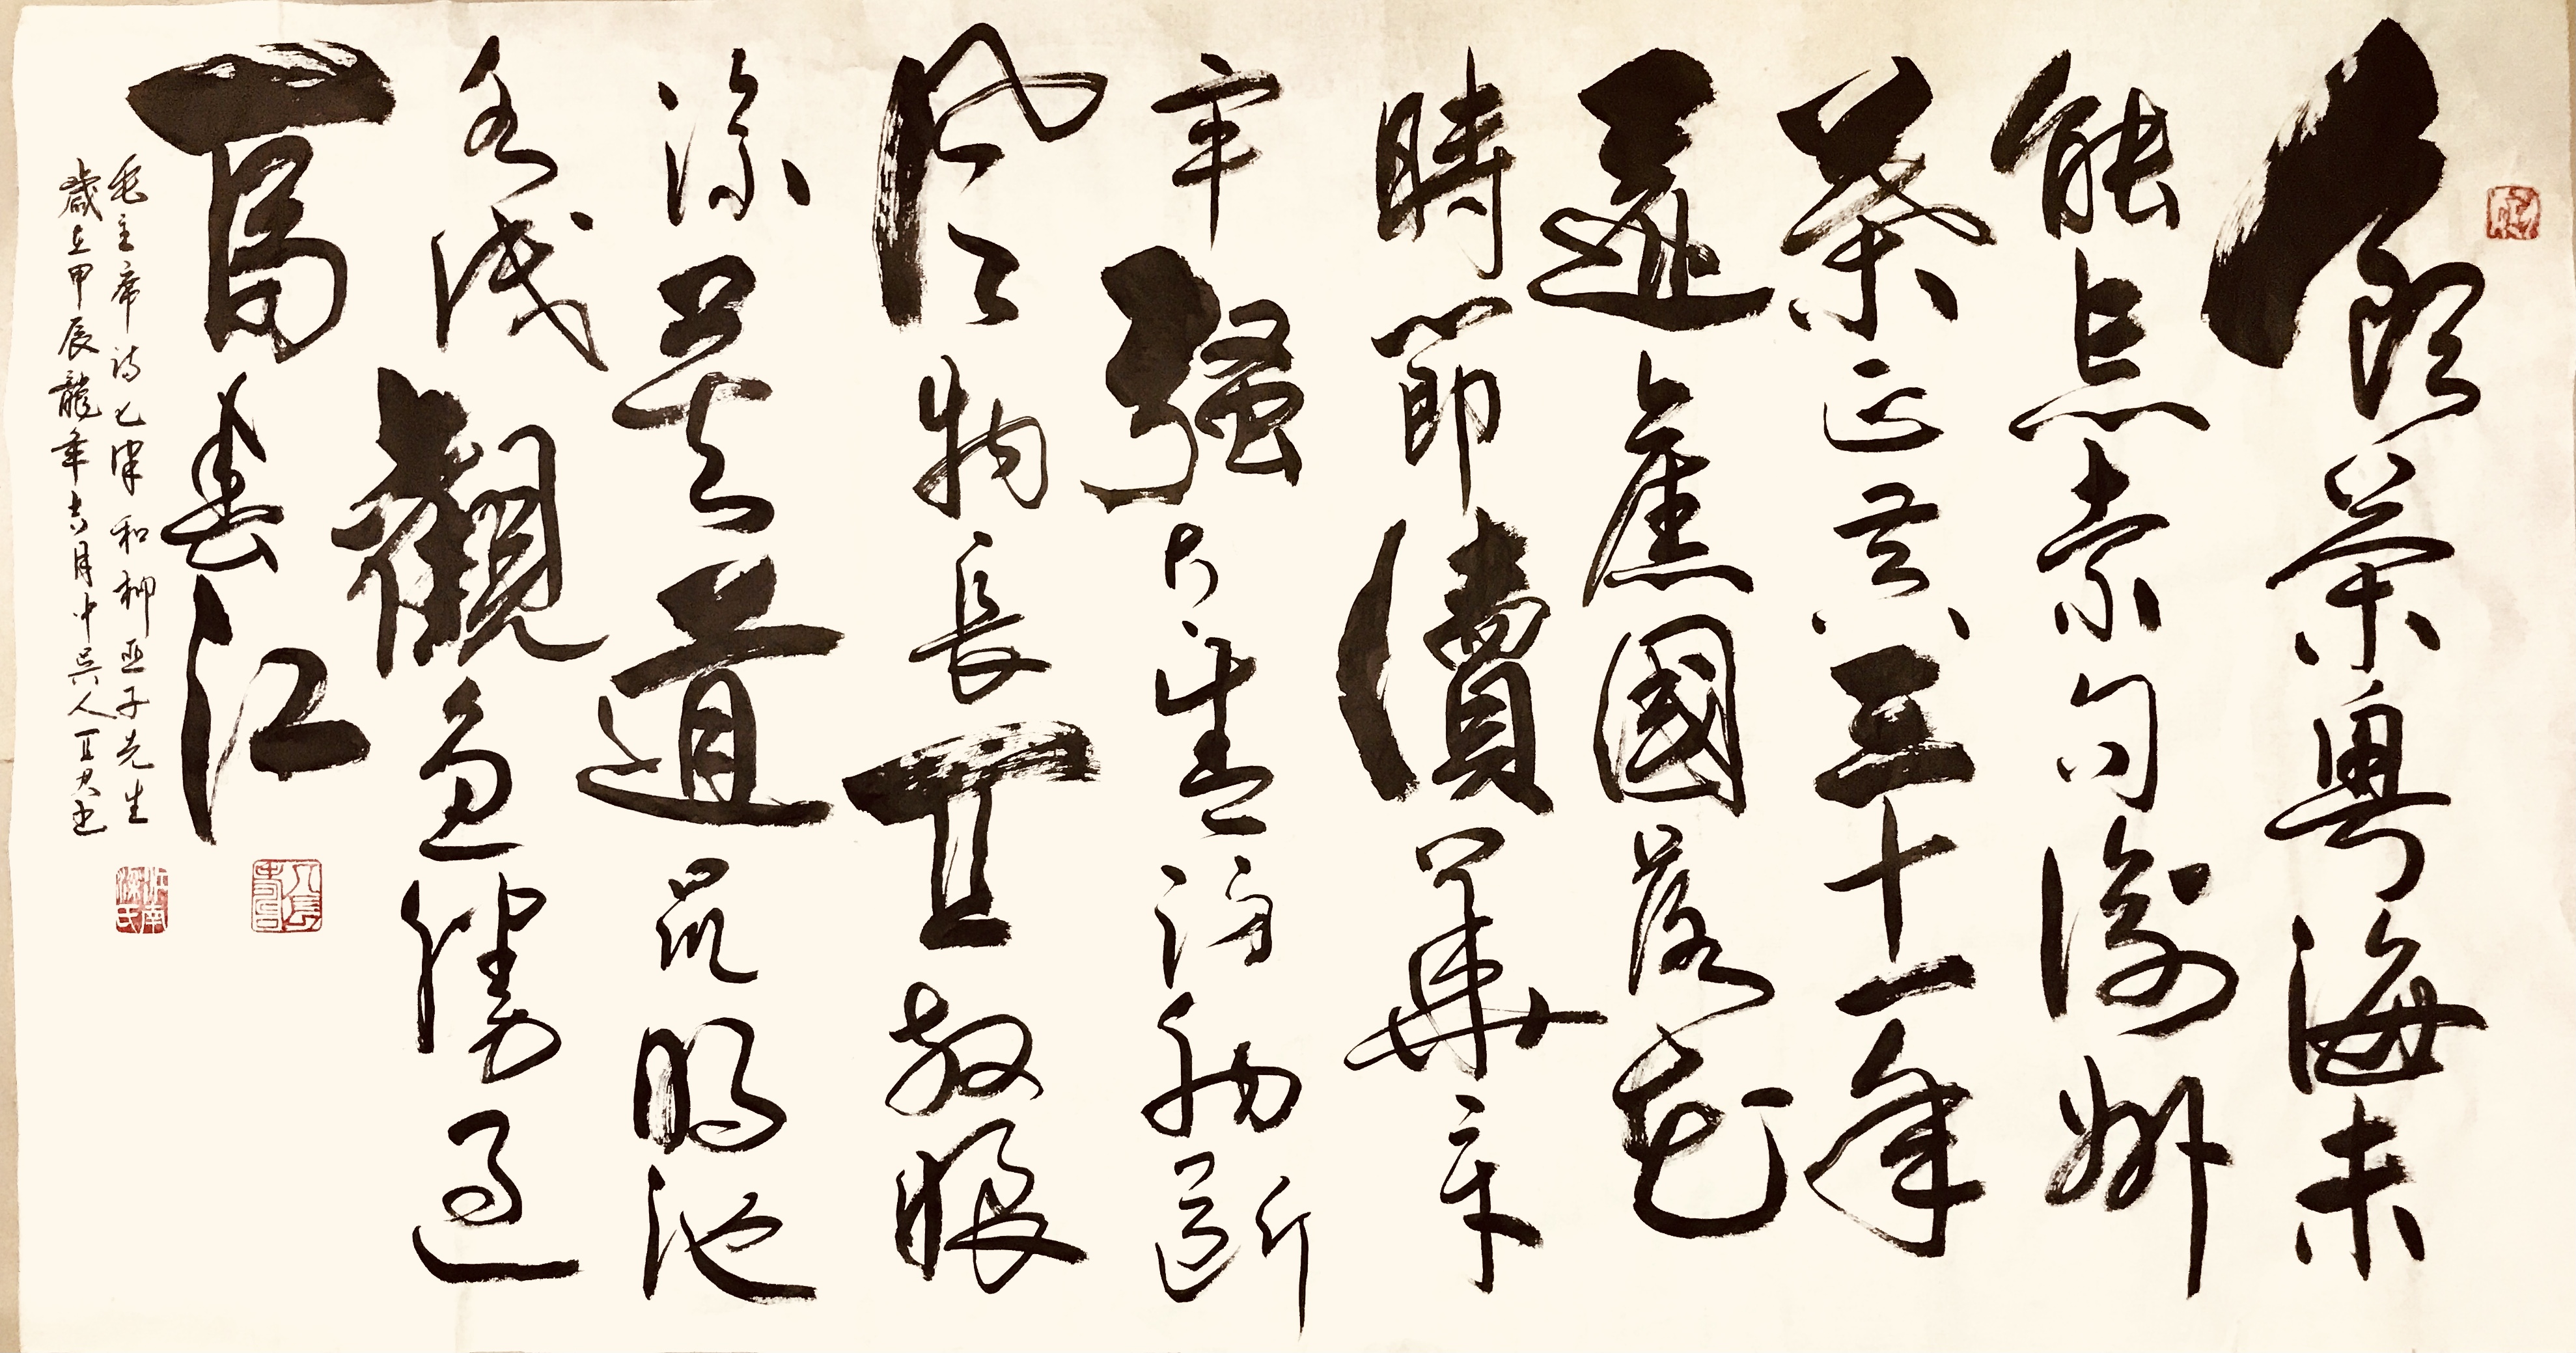 飲茶粵海未
能忘索句渝州
葉正黃三十一年
還舊國落花
時節讀華章
牢騷太盛防腸斷
風物長宜放眼
涼莫道昆明池
水淺觀魚勝過
富春江
毛主席詩七律和柳亞子先生
歲在甲辰龍年吉月中吳人